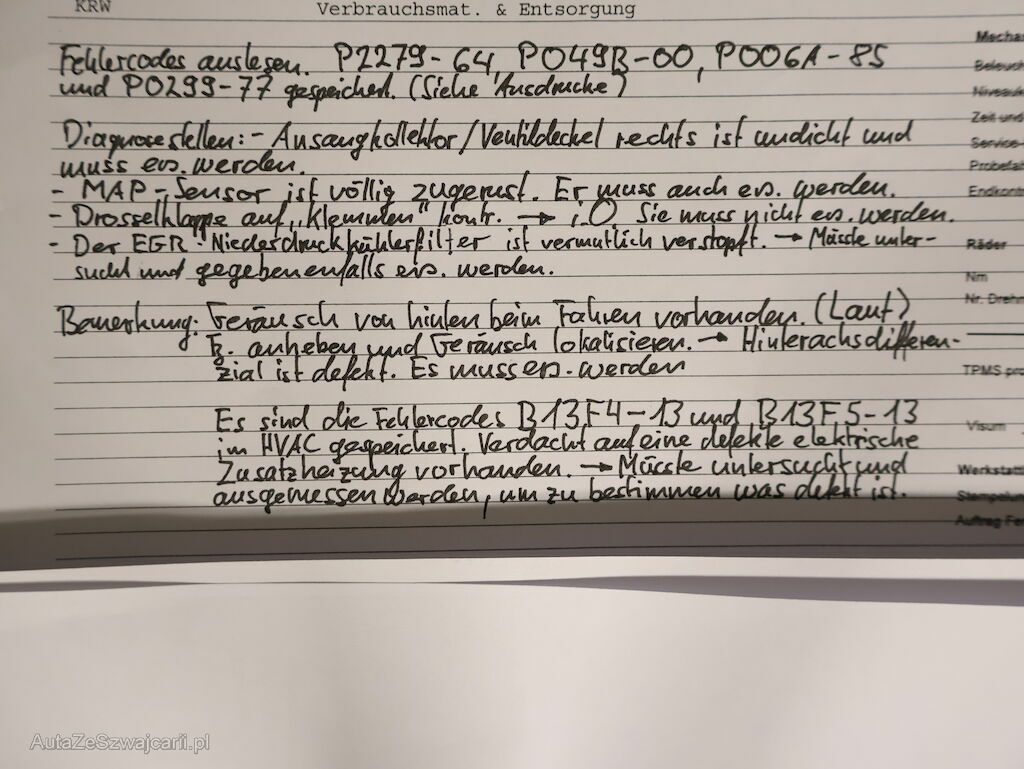 KRW Verbrauchsmat. & Entsorgung
Fehlercodes auslesen. P2279-64, P049B-00, P006A-85
und P0299-77 gespeichert. (Siehe Ausdrucke)
Diagnosestellen: - Ansaugkollektor/Ventildeckel rechts ist undicht und
muss ers. werden.
- MAP-Sensor ist völlig zugerust. Er muss auch ers. werden.
- Drosselklappe auf "Klemmen" kontr. → i.O. Sie muss nicht ers. werden.
- Der EGR-Niederdruckkühlerfilter ist vermutlich verstopft. → Müsste unter-
sucht und gegebenenfalls ers. werden.
Bemerkung: Geräusch von hinten beim Fahren vorhanden. (Laut)
Fz. anheben und Geräusch lokalisieren. → Hinterachsdifferen-
zial ist defekt. Es muss ers. werden
Es sind die Fehlercodes B13F4-13 und B13F5-13
im HVAC gespeichert. Verdacht auf eine defekte elektrische
Zusatzheizung vorhanden. → Müsste untersucht und
ausgemessen werden, um zu bestimmen was defekt ist.
Mecha
Beleuch
Niveauk
Zeit und
Service-
Probefal
Endkont
Räder
Nm
Nr. Drehm
TPMS pro
Visum
Werkstatt
Stempelun
Auftrag Fe
AutaZeSzwajcarii.pl